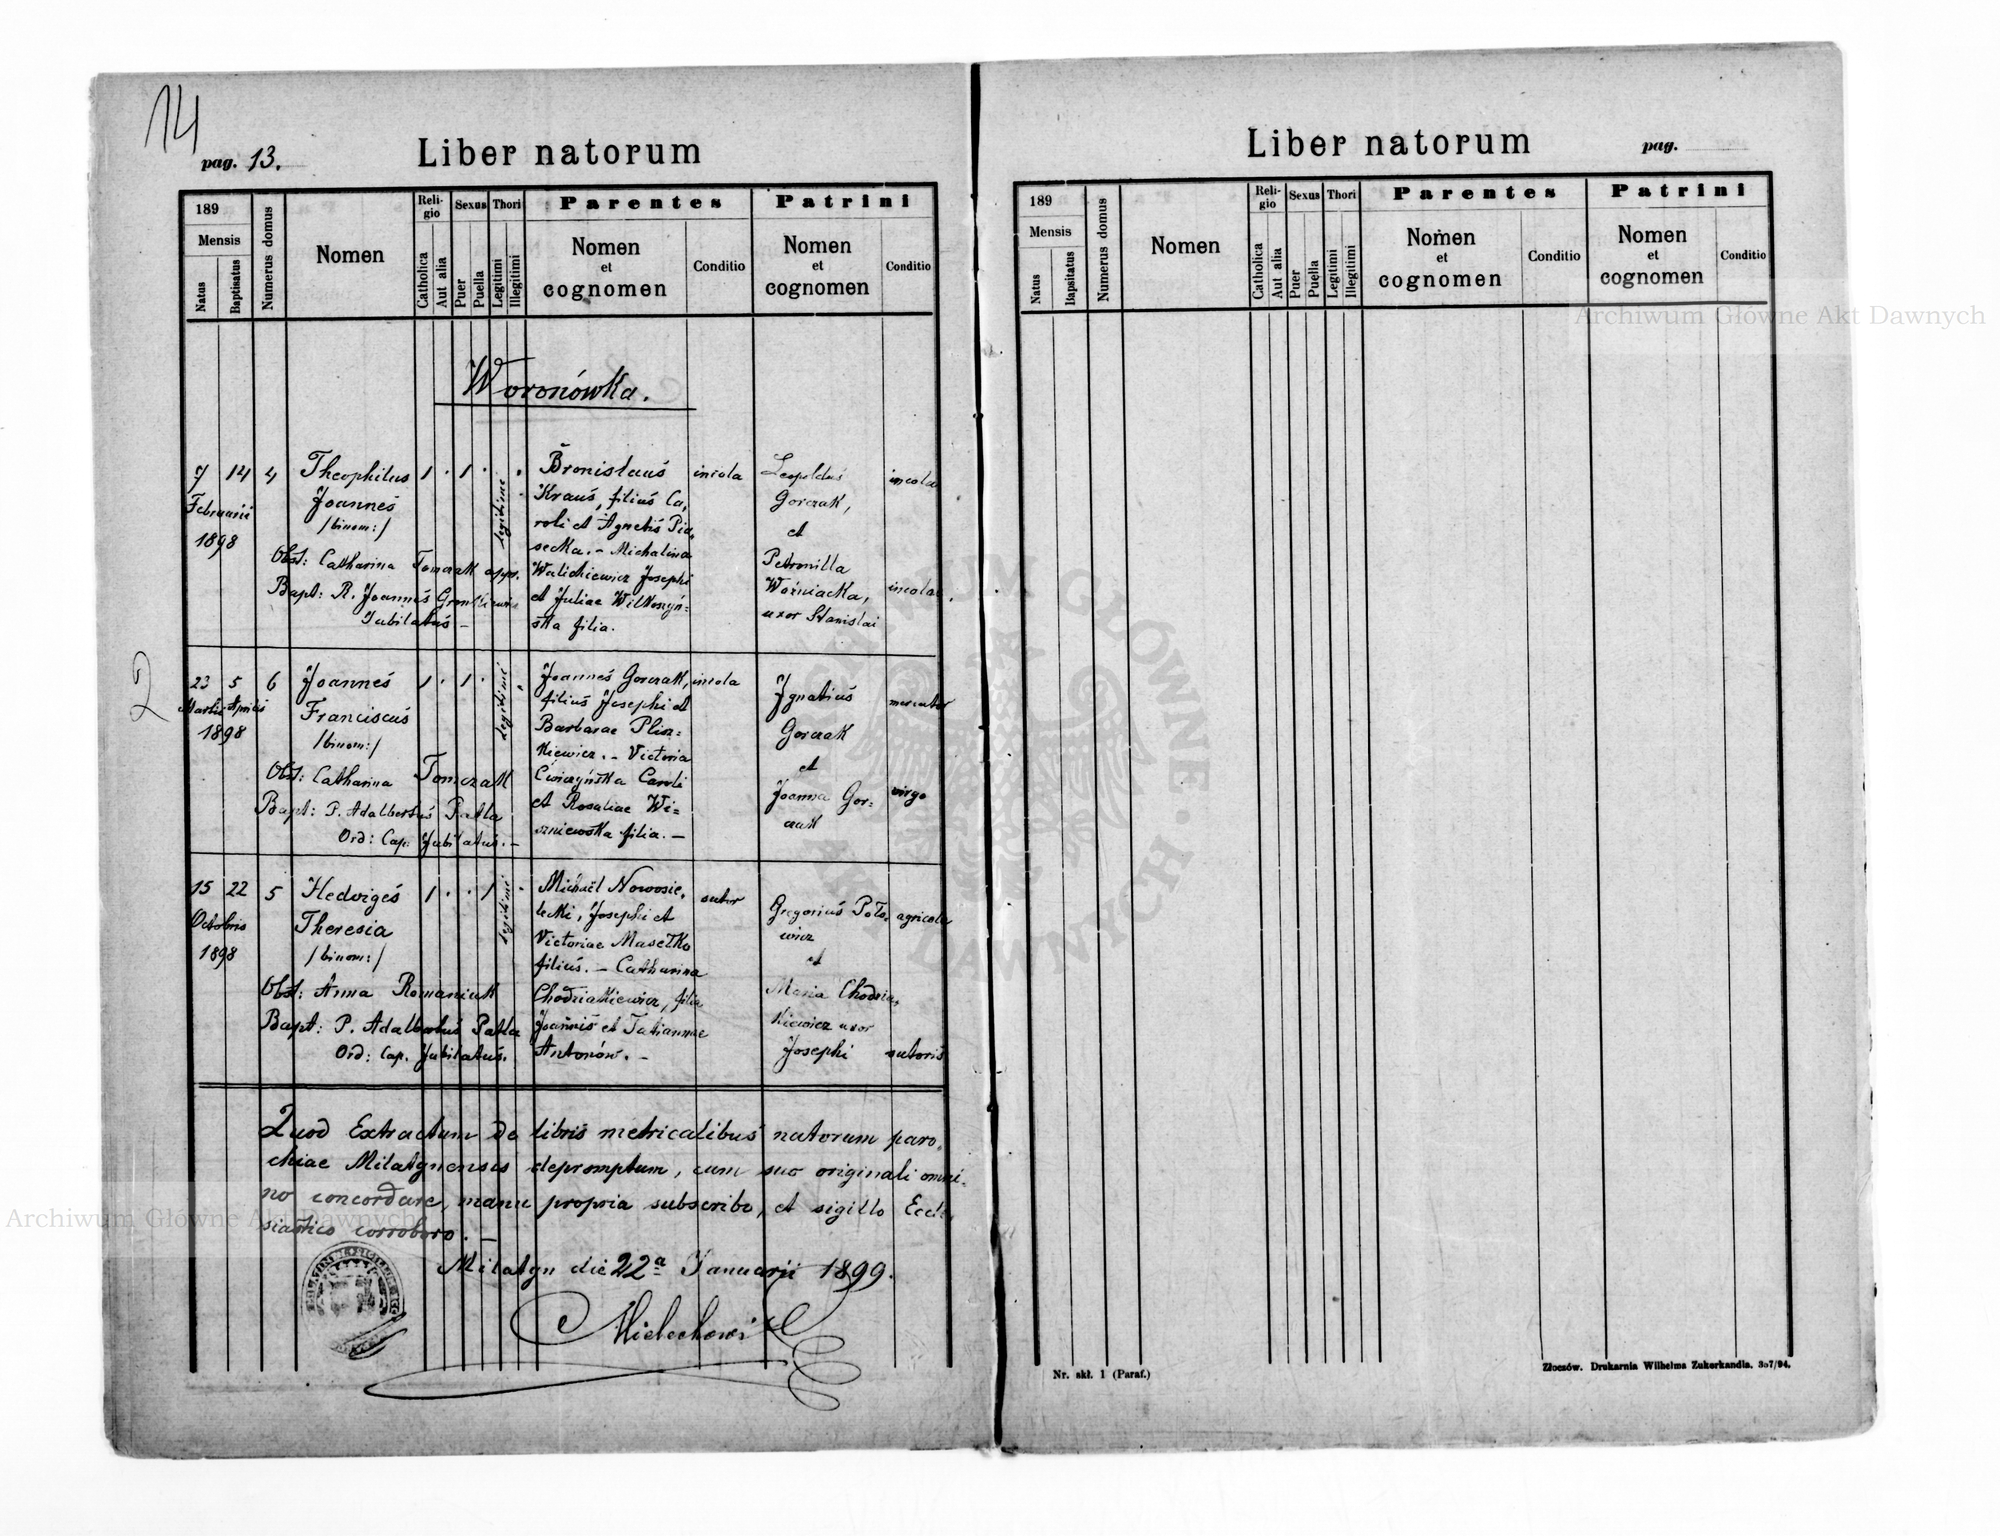 14
pag. 13.
Liber natorum
189
Mensis
Natus
Baptisatus
Numerus domus
Nomen
Religio
Catholica
Aut alia
Sexus
Puer
Puella
Thori
Legitimi
Illegitimi
Parentes
Nomen
et
cognomen
Conditio
Patrini
Nomen
et
cognomen
Conditio
Woronówka.
7 14 4 Theophilus 1 . 1 . legitimi Bronislaus incola Leopoldus incola
Februarii Joannes Kraus, filius Ca- Gorczak,
1898 /binom:/ roli et Agnetis Pia- et
secka. - Michalina Petronilla
Obst: Catharina Tomczak appr. Walickiewicz Josephi Woźniacka, incolae.
Bapt: R. Joannes et Juliae Wilkoszyń- uxor Stanislai
Jubilatus - ska filia.
2
23 5 6 Joannes 1 . 1 . legitimi Joannes Gorczak, incola Ignatius mercator
Martii Aprilis Franciscus filius Josephi et Gorczak
1898 /binom:/ Barbarae Plisz- et
kiewicz. - Victoria Joanna Gor- virgo
Obst: Catharina Tomczak Ćwiczyńska Caroli czak
Bapt: P. Adalbertus Patla et Rosaliae Wi-
Ord: Cap. Jubilatus. - szniewska filia. -
15 22 5 Hedviges 1 . . 1 legitimi Michaël Nowosie- sutor Gregorius Poto- agricola
Octobris Theresia lecki, Josephi et wicz
1898 /binom:/ Victoriae Masełko et
filius. - Catharina Maria Chodzia-
Obst: Anna Romaniuk Chodziakiewicz, filia kiewicz uxor
Bapt: P. Adalbertus Patla Joannis et Tatiannae Josephi sutoris
Ord: Cap. Jubilatus. Antonów. -
Quod Extractum de libris metricalibus natorum paro-
chiae Milatynensis depromptum, cum suo originali omni-
no concordare, manu propria subscribo, et sigillo Eccle-
siastico corroboro. -
Milatyn die 22ª Januarii 1899.
Liber natorum
pag.
189
Mensis
Natus
Bapsitatus
Numerus domus
Nomen
Religio
Catholica
Aut alia
Sexus
Puer
Puella
Thori
Legtimi
Illegitimi
Parentes
Nomen
et
cognomen
Conditio
Patrini
Nomen
et
cognomen
Conditio
Nr. skł. 1 (Paraf.)
Złoczów. Drukarnia Wilhelma Zukerkandla. 307/94.
Archiwum Główne Akt Dawnych
Archiwum Główne Akt Dawnych
ARCHIWUM GŁÓWNE AKT DAWNYCH